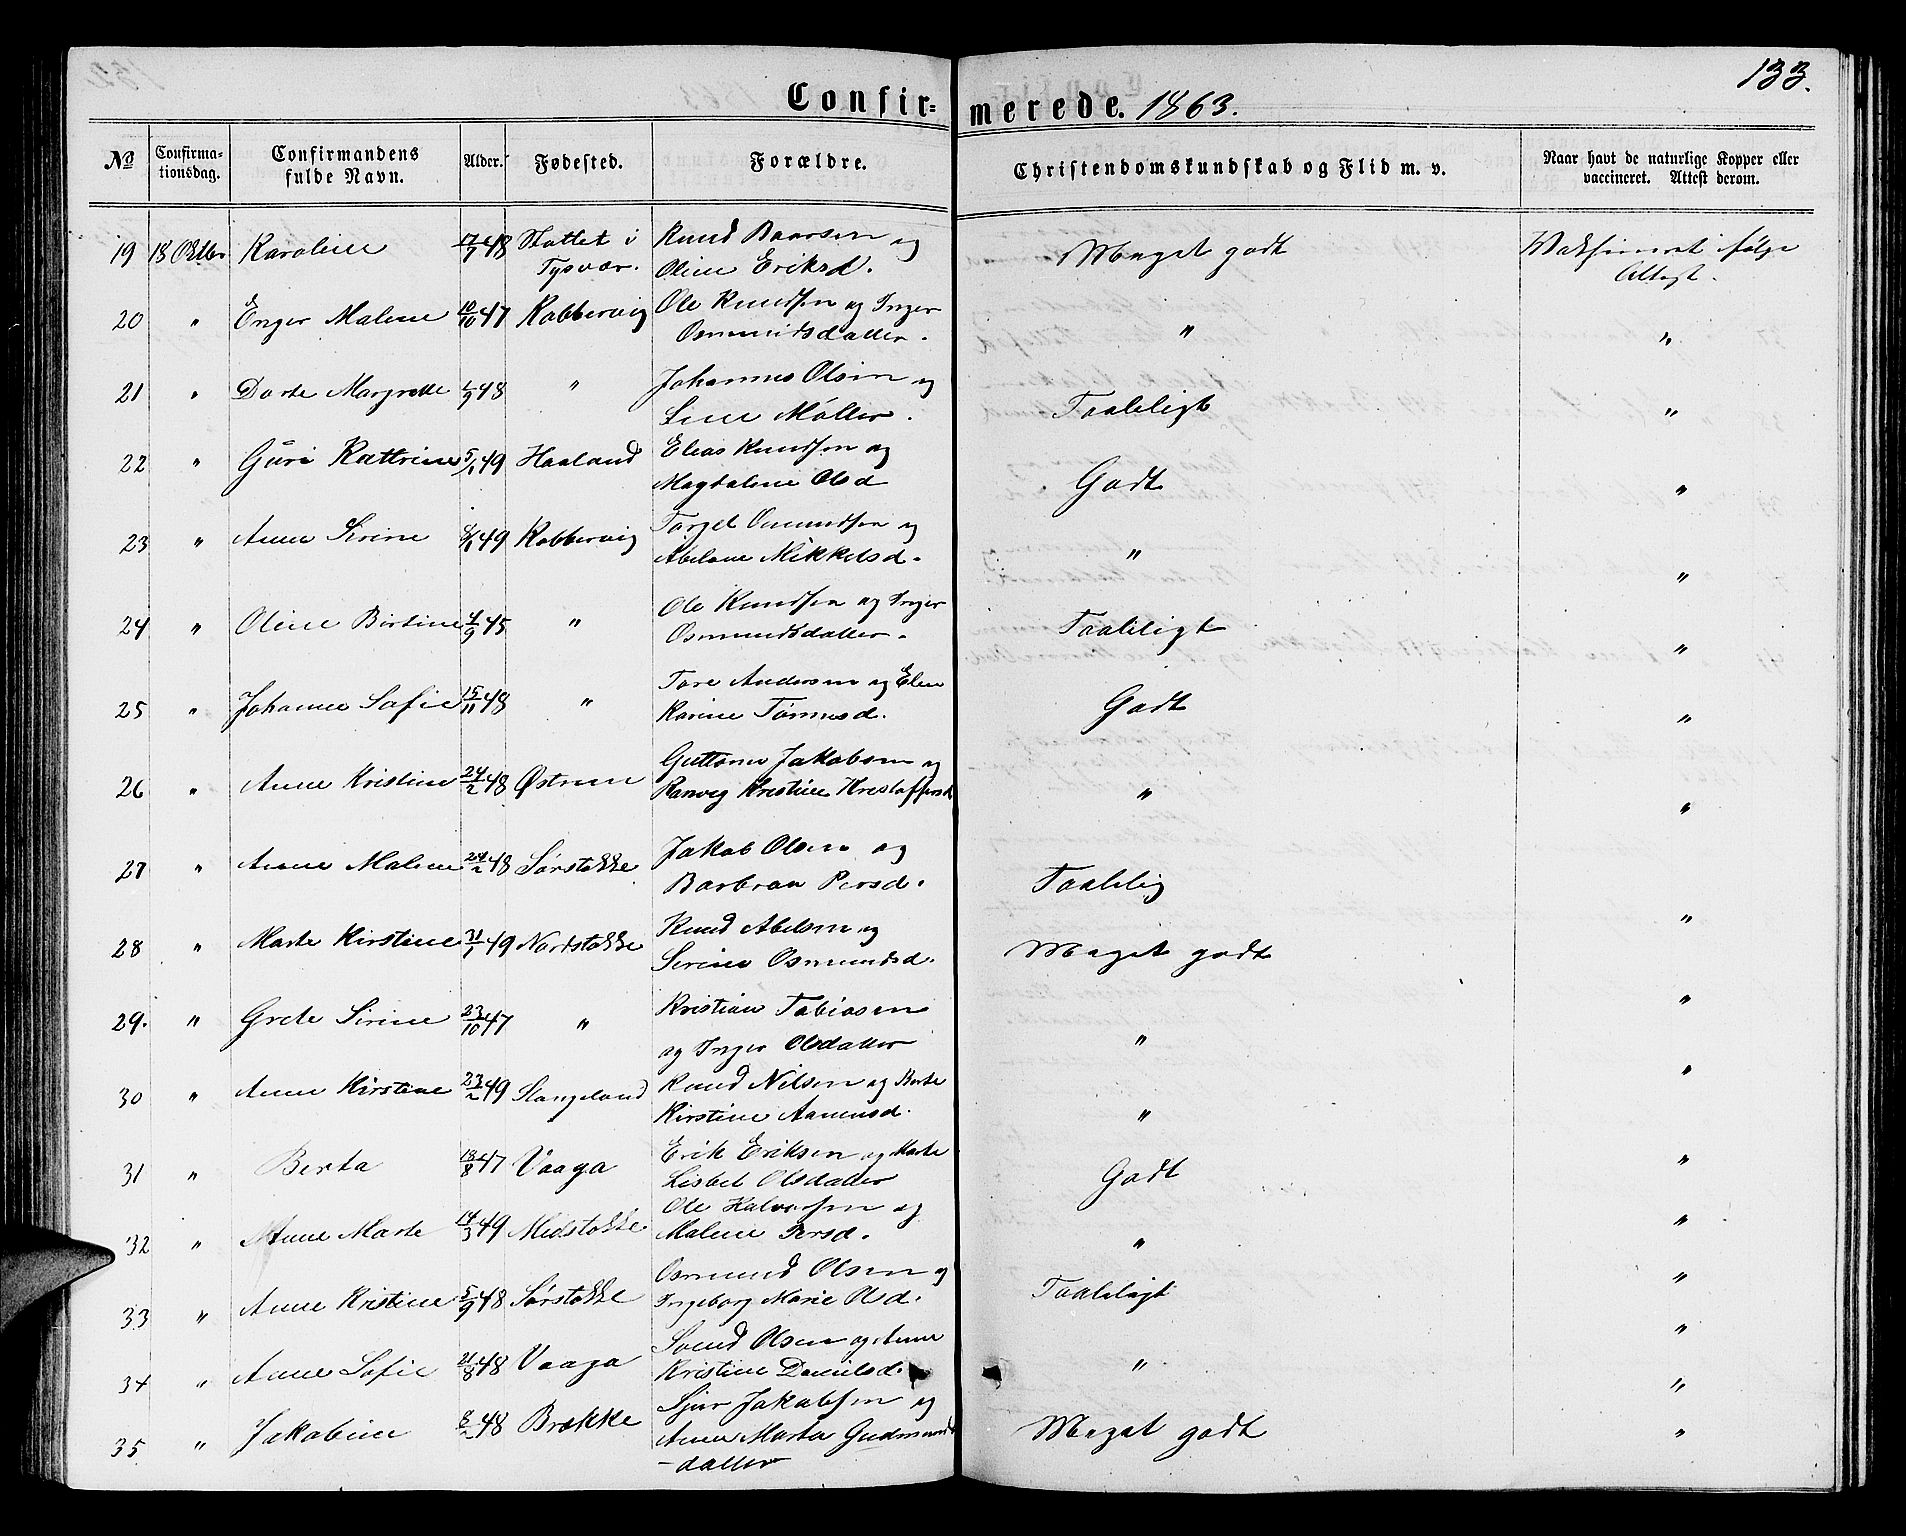 133.
Confirmerede. 1863.
No Confirmationsdag. Confirmandens fulde Navn. Alder. Fødested. Forældre. Christendomskundskab og Flid m. v. Naar havt de naturlige Kopper eller vaccineret. Attest derom.
19 18 Oktbr Karoline 17/7 48 Slattet i Tysvær. Knud Baarsen og Oline Eriksd. Meget godt Vaksineret ifølge Attest.
20 " Enger Malene 10/10 47 Kobbervig Ole Knudsen og Inger Osmundsdatter. " "
21 " Dorte Margrete 1/9 48 " Johannes Olsen og Line Møller. Taaleligt "
22 " Guri Kattrine 5/1 49 Haaland Elias Knudsen og Magdalene Olsd Godt "
23 " Anne Serine 49 Kobbervig Torgel Omundsen og Abelone Mikkelsd. " "
24 " Oline Birtine 4/9 45 " Ole Knudsen og Inger Osmundsdatter. Taaleligt "
25 " Johanne Sofie 15/11 48 " Tore Andersen og Elen Karine Tønnesd. Godt "
26 " Anne Kristine 24/2 48 Østrem Guttorm Jakobsen og Ranveg Kristine Kristoffersd " "
27 " Anne Malene 24/2 48 Sørstokke Jakob Olsen og Barbraa Persd. Taalelig "
28 " Marte Kirstine 31/1 49 Nordstokke Knud Abelsen og Serine Osmundsd. Meget godt "
29. " Grete Sirine 23/10 47 " Kristian Tobiasen og Inger Olsdatter " "
30 " Anne Kirstine 23/2 49 Stangeland Knud Nilsen og Berte Kirstine Aamunsd. " "
31 " Berta 13/8 47 Vaaga Erik Eriksen og Marte Lisbet Olsdatter Godt "
32 " Anne Marte 14/3 49 Midstokke Ole Halvorsen og Malene Persd. " "
33 " Anne Kristine 5/9 48 Sørstokke Osmund Olsen og Ingeborg Marie Olsd. Taaleligt "
34 " Anne Sofie 21/8 48 Vaaga Svend Olsen og Anne Kristine Danielsd. " "
35 " Jakobine 8/2 48 Brække Sjur Jakobsen og Anne Marta Gudmundsdatter Meget godt "